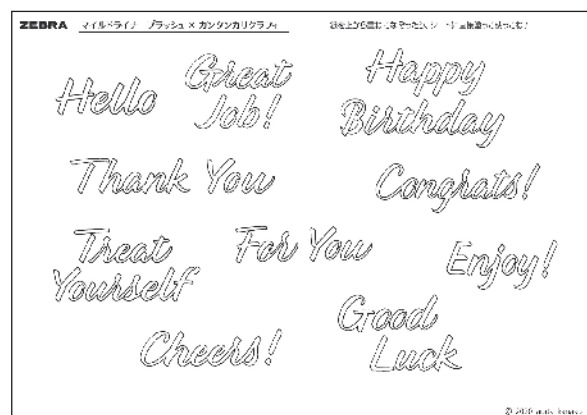 ZEBRA マイルドライナー ブラッシュ × カンタンカリグラフィ
Hello
Great
Job!
Happy
Birthday
Thank You
Congrats!
Treat
Yourself
For You
Enjoy!
Cheers!
Good
Luck
© 2020